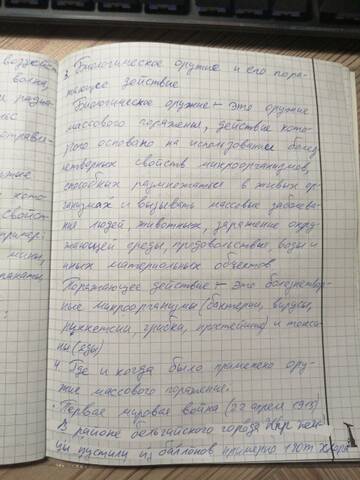 воздейст
волна,
и радиа-
ис
отравля-
3. Биологическое оружие и его пора-
жающее действие.
Биологическое оружие - это оружие
массового поражения, действие кото-
рого основано на использовании болез
нетворных свойств микроорганизмов,
способных размножаться в живых ор-
ганизмах и вызывать массовые заболева-
ния людей, животных, заражение окру-
жающей среды, продовольствие, воды и
иных материальных объектов
Поражающее действие - это болезнетвор-
ные микроорганизмы (бактерии, вирусы,
риккетсии, грибки, простейшие) и токси-
ны (яды)
4. Где и когда было применено ору-
жие массового поражения.
Первая мировая война (22 апреля 1915)
В районе бельгийского города
пустили из баллонов примерно 180т хлора